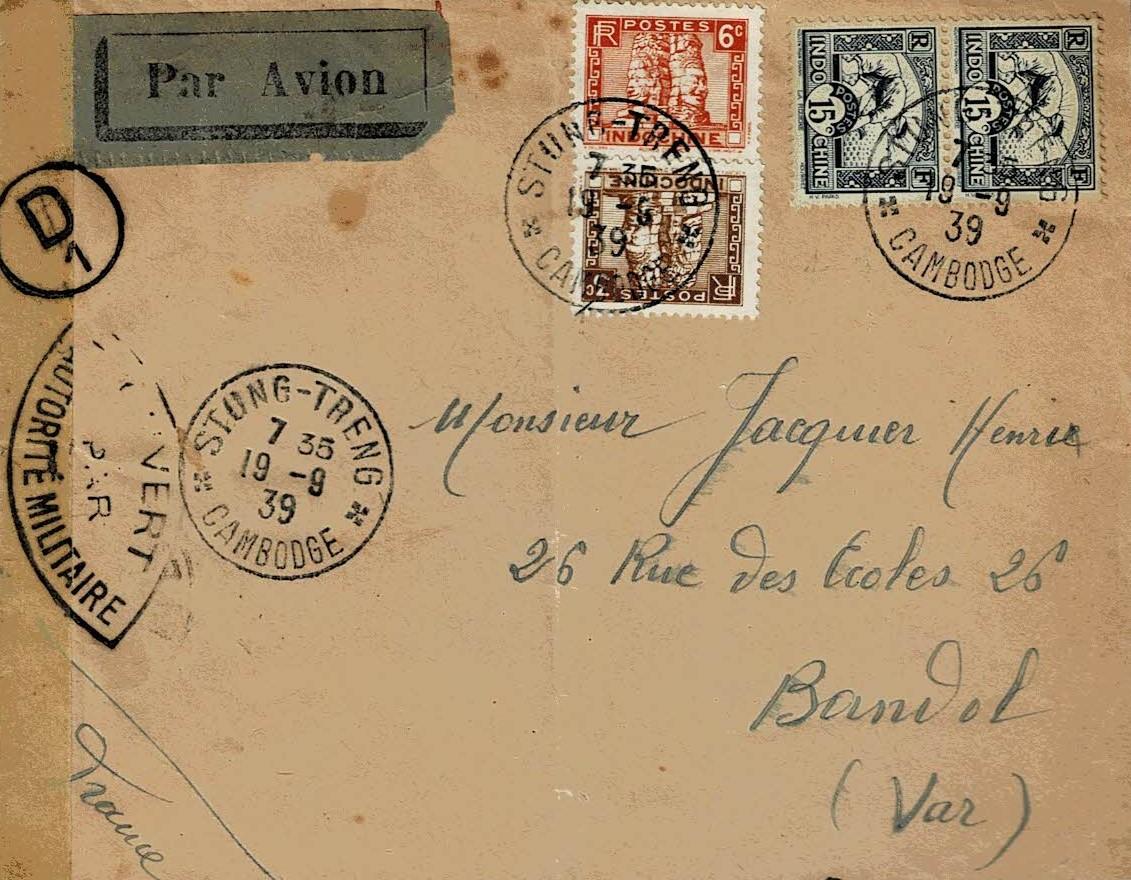 Par Avion
RF POSTES 6c
INDOCHINE
INDOCHINE
7c POSTES RF
INDO CHINE
15c POSTES
RF
INDO CHINE
15c POSTES
RF
STUNG-TRENG
7 35
19 -9
39
CAMBODGE
7
19 -9
39
CAMBODGE
D1
VERT
PAR
AUTORITÉ MILITAIRE
STUNG-TRENG
7 35
19 -9
39
CAMBODGE
Monsieur Jacquier Henrie
26 Rue des Ecoles 26
Bandol
(Var)
France